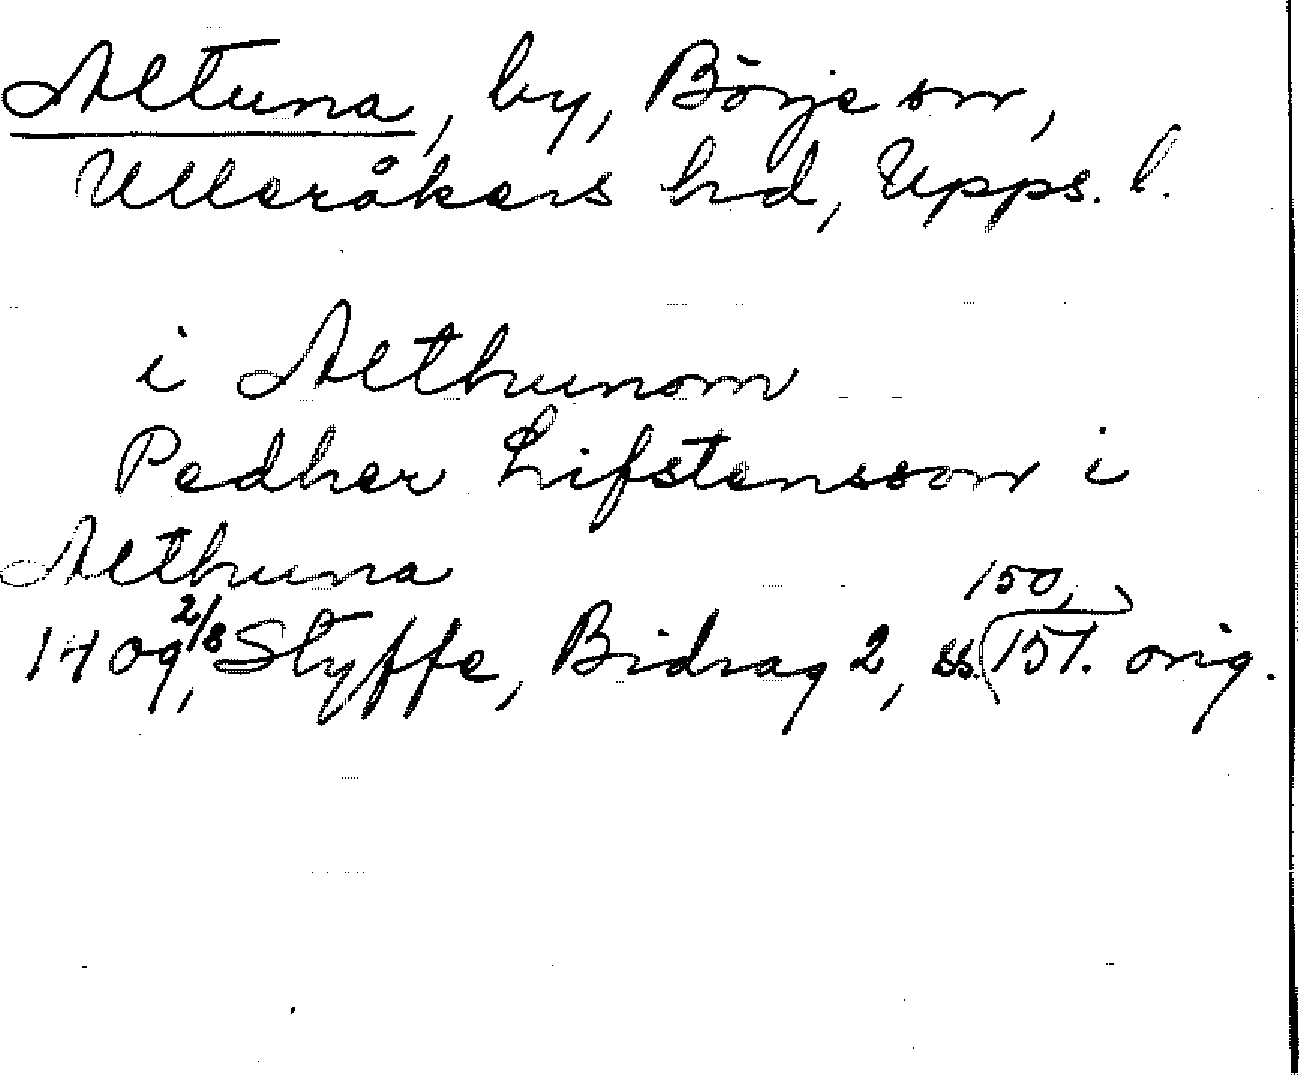 Altuna, by, Börje sn,
Ulleråkers hd, Upps. l.
i Althunom
Pedher Lifstensson i
Althuna
1409 2/8, Styffe, Bidrag 2, ss. 150, 151. orig.